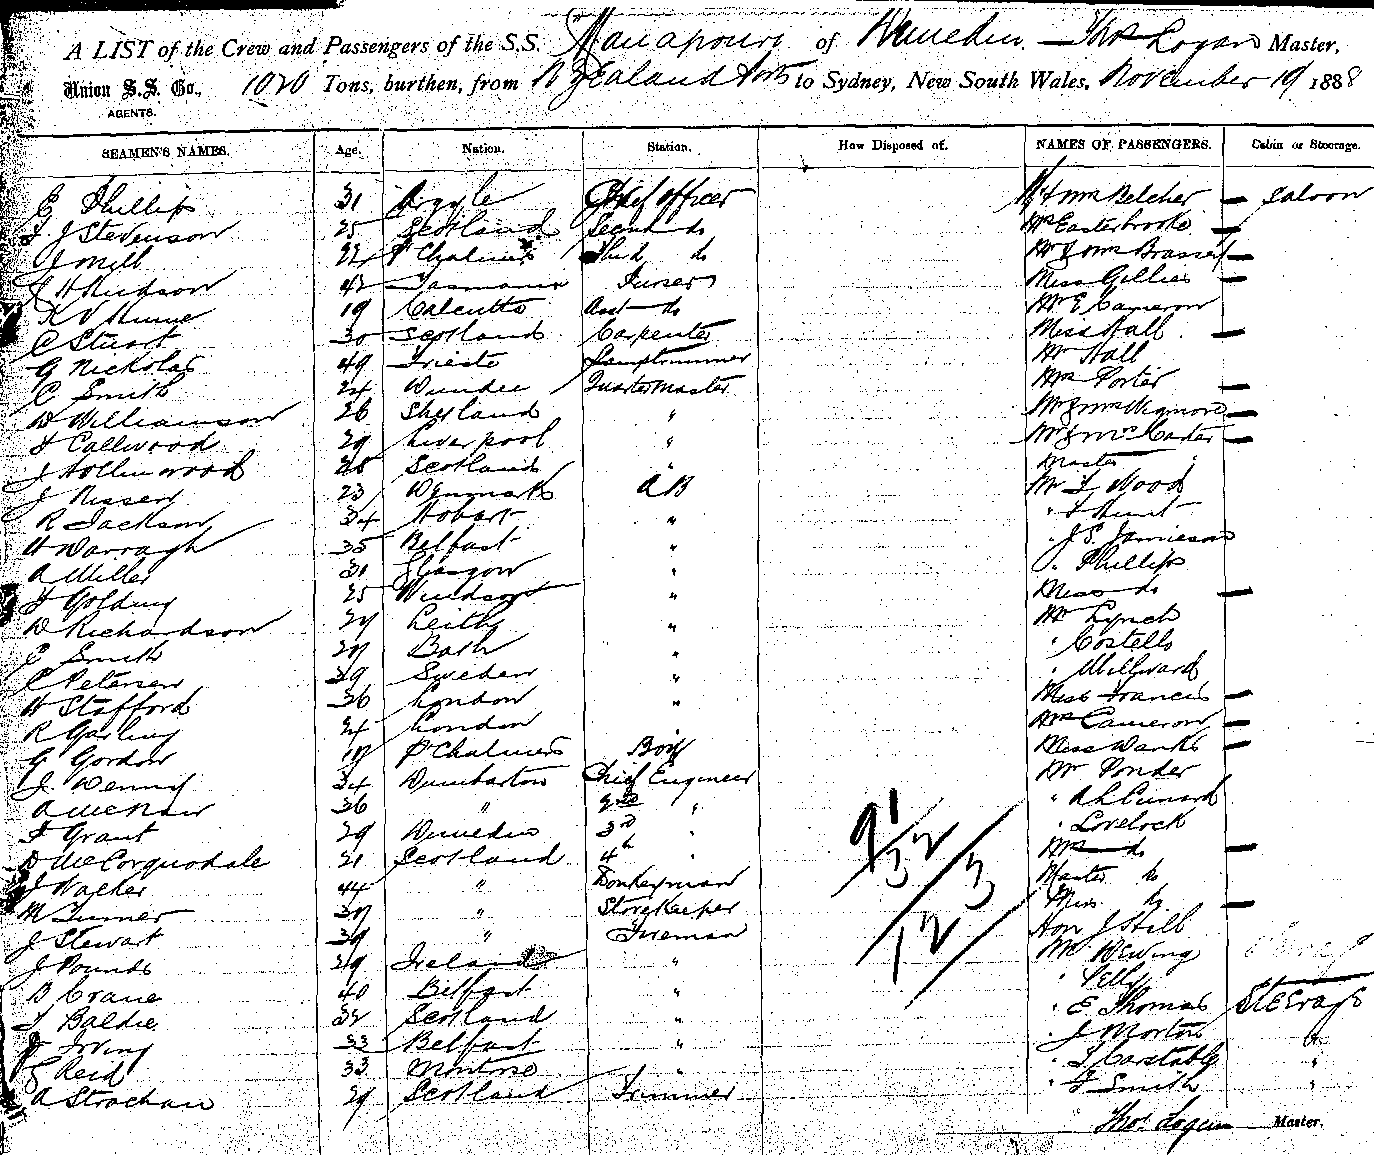 A LIST of the Crew and Passengers of the S.S. Manapouri of Dunedin. Thos Logan Master,
Union S.S. Co., 1020 Tons, burthen, from N Zealand Ports to Sydney, New South Wales, November 19 1888
AGENTS.
SEAMEN'S NAMES. Age. Nation. Station. How Disposed of. NAMES OF PASSENGERS. Cabin or Steerage.
E Phillips 31 Argyle Chief Officer Mr & Mrs Belcher — Saloon
J Stevenson 25 Scotland Second do Mrs Easterbrooke —
22 Pt Chalmers Third do Mr & Mrs —
42 Tasmania Purser Miss Gillies —
19 Calcutta Asst do Mr E Cameron
C Stuart 30 Scotland Carpenter Miss Hall —
G Nickolas 49 Trieste Lamptrimmer Mr Hall
C Smith 24 Dundee Quartermaster Mrs Porter —
D Williamson 26 Shetland " Mr & Mrs —
Callwood 29 Liverpool " Mr & Mrs —
J Hollinwood 25 Scotland " Master "
J 23 Denmark AB Mr Wood
R Jackson 34 Hobart " " Hunt
H Darragh 35 Belfast " " J. S. Jamieson
A Miller 31 Glasgow " " Phillips
Golding 25 Windsor " Miss do —
D Richardson 29 Leith " Mr Lynch
E Smith 27 Bath " " Costello
C Petersen 39 Sweden " " Millward
H Stafford 36 London " Miss Francis —
R Garling 24 London Mrs Cameron —
G Gordon 17 Pt Chalmers Boy Miss —
J. Denny 34 Dumbarton Chief Engineer Mr Ponder
A 36 " 2nd " "
Grant 29 Dunedin 3rd " " Lovelock
D McCorquodale 21 Scotland 4th " Mrs do —
J Walker 44 " Donkeyman Master do
M Turner 37 " Storekeeper Miss do —
J Stewart 39 " Fireman Hon J
J Pounds 29 Ireland " Mr
B Crane 40 Belfast " "
Baldie 32 Scotland " " E Thomas Steerage
J Irving 33 Belfast " " J Morton "
Reid 33 Montrose " " Constable "
A Strachan 29 Scotland Trimmer " Smith "
91/32/3
12
Thos Logan Master.